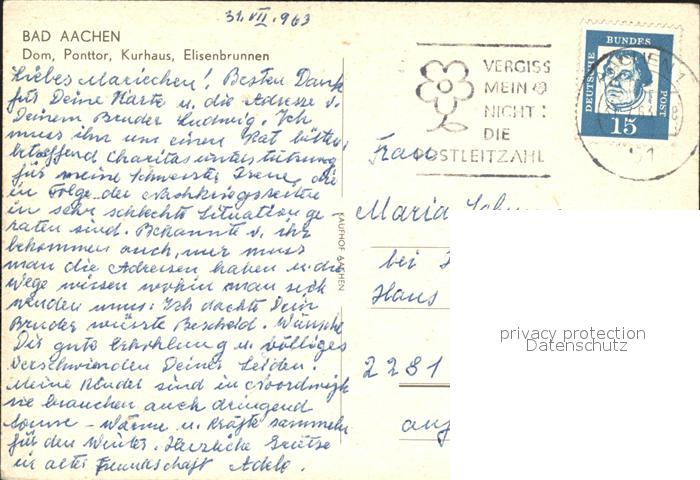 31.VII.963
BAD AACHEN
Dom, Ponttor, Kurhaus, Elisenbrunnen
Liebes Mariechen! Besten Dank
für Deine Karte u. die Adresse v.
Deinem Bruder Ludwig. Ich
muss ihn um einen Rat bitten,
betreffend Charitasunterstützung
für meine Schwester Irene, die
in Folge der Nachkriegszeiten
in sehr schlechte Situation ge-
raten sind. Bekannte v. ihr
bekommen auch, nur muss
man die Adressen haben u. die
Wege wissen wohin man sich
wenden muss. Ich dachte Dein
Bruder wüsste Bescheid. Wünsche
Dir gute Erhohlung u. völliges
Verschwinden Deiner Leiden!
Meine Kinder sind in
sie brauchen auch dringend
Sonne - Wärme u. Kräfte sammeln
für den Winter. Herzliche Grüsse
in alter Freundschaft Adele.
KAUFHOF AACHEN
VERGISS
MEIN
NICHT:
DIE
POSTLEITZAHL
DEUTSCHE BUNDESPOST
15
AACHEN 1
51
Frau
Maria
bei
Haus
2281
auf
privacy protection
Datenschutz